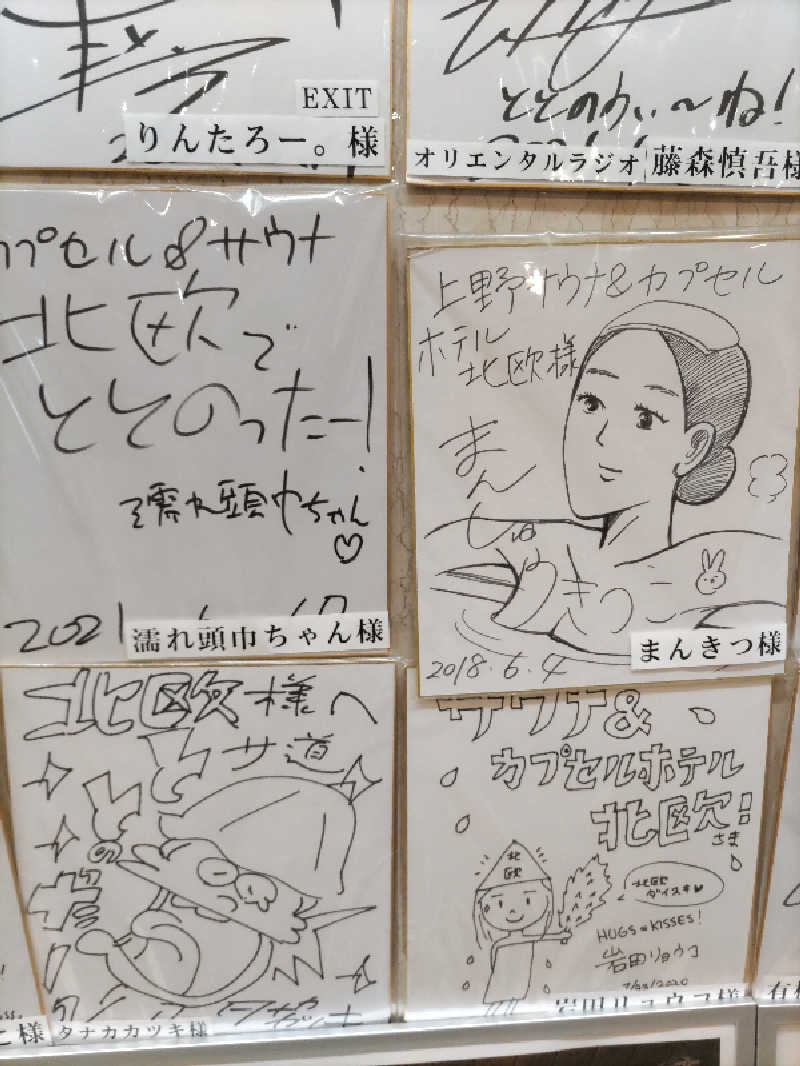 EXIT
りんたろー。様
ととのうぃ〜ね!
オリエンタルラジオ 藤森慎吾様
カプセル&サウナ
北欧で
ととのったー!
濡れ頭巾ちゃん
2021
濡れ頭巾ちゃん様
上野サウナ&カプセル
ホテル
北欧様
まん
しゅう
きつこ
2018.6.4
まんきつ様
北欧様へ
サ道
ととのっ
タナカカツキ様
サウナ&
カプセルホテル
北欧!
さま
北欧
北欧
ダイスキ♥
HUGS & KISSES!
岩田リョウコ
2020
岩田リョウコ様
様